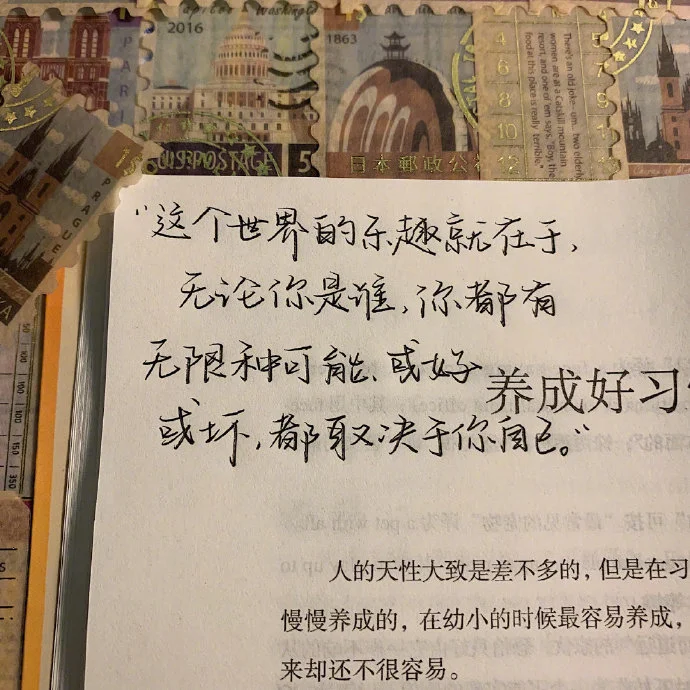 2016
1863
PARI
PRAGUE
POSTAGE
5
日本郵政公
There's an old joke- um, two elderly
women are at a Catskill mountain
resort, and one of 'em says, "Boy, the
food at this place is really terrible."
4
6
8
10
12
"这个世界的乐趣就在于,
无论你是谁,你都有
无限种可能、或好
或坏,都取决于你自己。"
养成好习
人的天性大致是差不多的，但是在习
慢慢养成的，在幼小的时候最容易养成，
来却还不很容易。
50
100
150
350